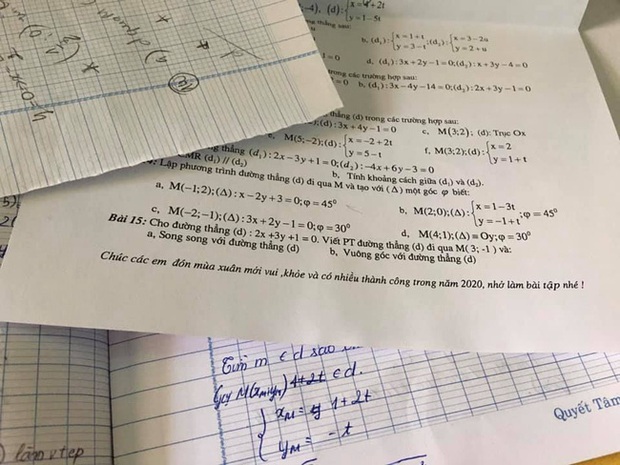 -4), (d): {x = 4 + 2t
y = 1 - 5t
thẳng sau:
b, (d₁): {x = 1 + t
y = 3 - t ; (d₂): {x = 3 - 2u
y = 2 + u
1 = 0
d, (d₁): 3x + 2y - 1 = 0; (d₂): x + 3y - 4 = 0
trong các trường hợp sau:
= 0 b, (d₁): 3x - 4y - 14 = 0; (d₂): 2x + 3y - 1 = 0
thẳng (d) trong các trường hợp sau:
; (d): 3x + 4y - 1 = 0 c, M(3;2); (d): Trục Ox
e, M(5;-2); (d): {x = -2 + 2t
y = 5 - t f, M(3;2); (d): {x = 2
y = 1 + t
thẳng (d₁): 2x - 3y + 1 = 0; (d₂): -4x + 6y - 3 = 0
CMR (d₁) // (d₂) b, Tính khoảng cách giữa (d₁) và (d₂).
Lập phương trình đường thẳng (d) đi qua M và tạo với (Δ) một góc φ biết:
a, M(-1;2); (Δ): x - 2y + 3 = 0; φ = 45⁰ b, M(2;0); (Δ): {x = 1 - 3t
y = -1 + t ; φ = 45⁰
c, M(-2;-1); (Δ): 3x + 2y - 1 = 0; φ = 30⁰ d, M(4;1); (Δ) ≡ Oy; φ = 30⁰
Bài 15: Cho đường thẳng (d) : 2x + 3y + 1 = 0. Viết PT đường thẳng (d) đi qua M( 3; -1 ) và:
a, Song song với đường thẳng (d) b, Vuông góc với đường thẳng (d)
Chúc các em đón mùa xuân mới vui ,khỏe và có nhiều thành công trong năm 2020, nhớ làm bài tập nhé !
Tìm m ∈ d sao
Gọi M(xₘ; yₘ) 1+2t ∈ d.
{xₘ = 1 + 2t
yₘ = - t
Quyết Tâm